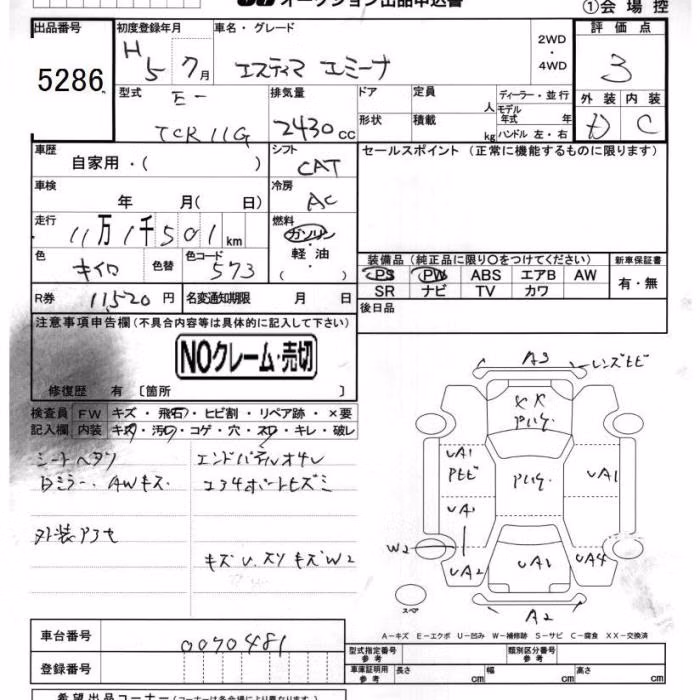 オークション出品申込書 ①会場控
出品番号 初度登録年月 車名・グレード 評価点
5286 H5 7月 エスティマ エミーナ 2WD・4WD 3
型式 排気量 ドア 定員 人 ディーラー・並行 外装 内装
E-TCR11G 2430cc 形状 積載 kg モデル年式 年 ハンドル 左・右 D C
車歴 シフト セールスポイント (正常に機能するものに限ります)
自家用・( ) CAT
車検 冷房
年 月( 日) AC
走行 燃料
11万1千501km ガソリン・軽油・( )
色 色替 色コード 装備品(純正品に限り○をつけてください) 新車保証書
キイロ 573 PS PW ABS エアB AW 有・無
SR ナビ TV カワ
R券 11,520円 名変通知期限 月 日 後日品
注意事項申告欄(不具合内容等は具体的に記入して下さい)
NOクレーム・売切
修復歴 有〔箇所 〕
検査員 FW キズ・飛石・ヒビ割・リペア跡・×要
記入欄 内装 キズ・汚レ・コゲ・穴・スレ・キレ・破レ
シートヘタリ
Dミラー、AWキズ
外装アセ
キズ U. スリキズ W2
A3 レンズヒビ
XX
UA1 UA1
UA1
W2 UA2 UA3 UA4
スペア A2
A-キズ E-エクボ U-凹み W-補修跡 S-サビ C-腐食 XX-交換済
車台番号 0070481 型式指定番号 参考 類別区分番号 参考
登録番号 車庫証明用 参考 長さ cm 幅 cm 高さ cm
希望出品コーナー(コーナーは各会場により異なります)